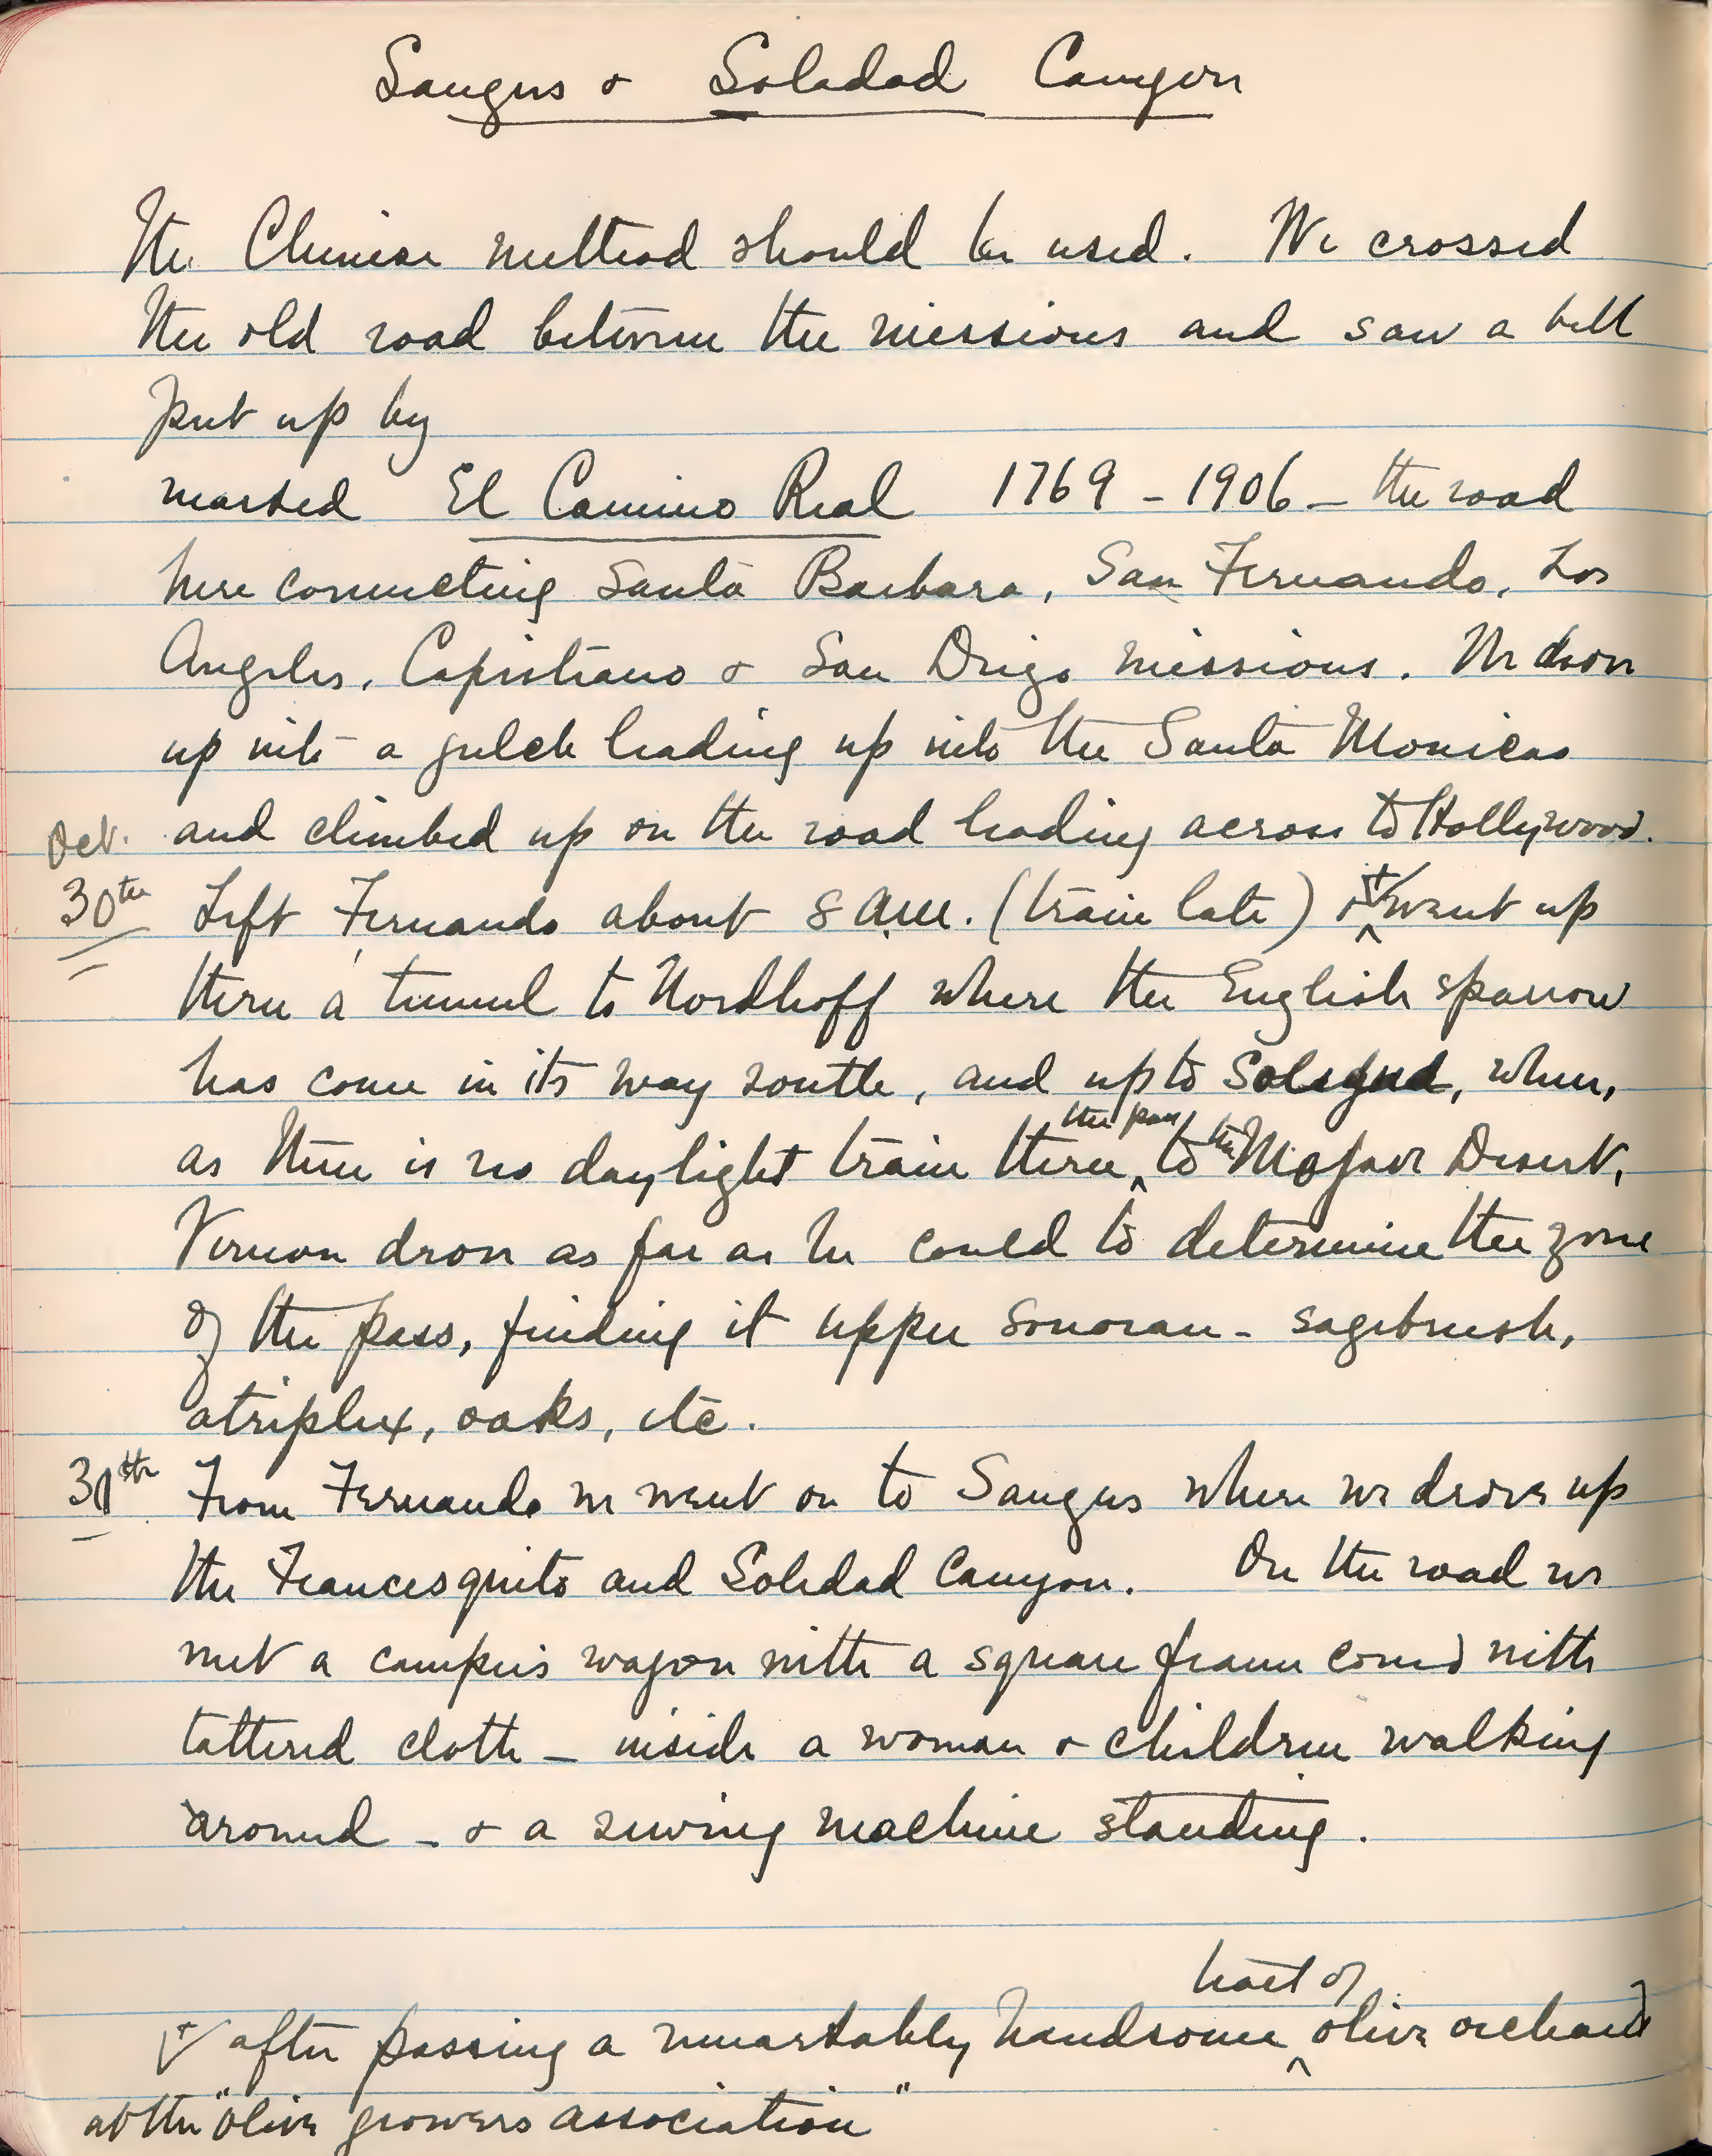 Saugus & Soladad Canyon
The Chinese method should be used. We crossed
the old road between the missions and saw a bell
put up by
marked El Camino Real 1769 - 1906 - the road
here connecting Santa Barbara, San Fernando, Los
Angeles, Capistrano & San Diego missions. We drove
up into a gulch leading up into the Santa Monicas
Oct. and climbed up on the road leading across to Hollywood.
30th Left Fernando about 8 A.M. (train late) & went up
thru a tunnel to Nordhoff where the English sparrow
has come in its way south, and up to Soledad, where,
the pass the
as there is no daylight train thru to Mojave Desert,
Vernon drove as far as he could to determine the zone
of the pass, finding it upper sonoran - sagebrush,
atriplex, oaks, etc.
30th From Fernando we went on to Saugus where we drove up
the Francesquito and Soledad Canyon. On the road we
met a campers wagon with a square frame cov'd with
tattered cloth - inside a woman & children walking
around - & a sewing machine standing.
tract of
after passing a remarkably handsome olive orchard
at the "olive growers association"